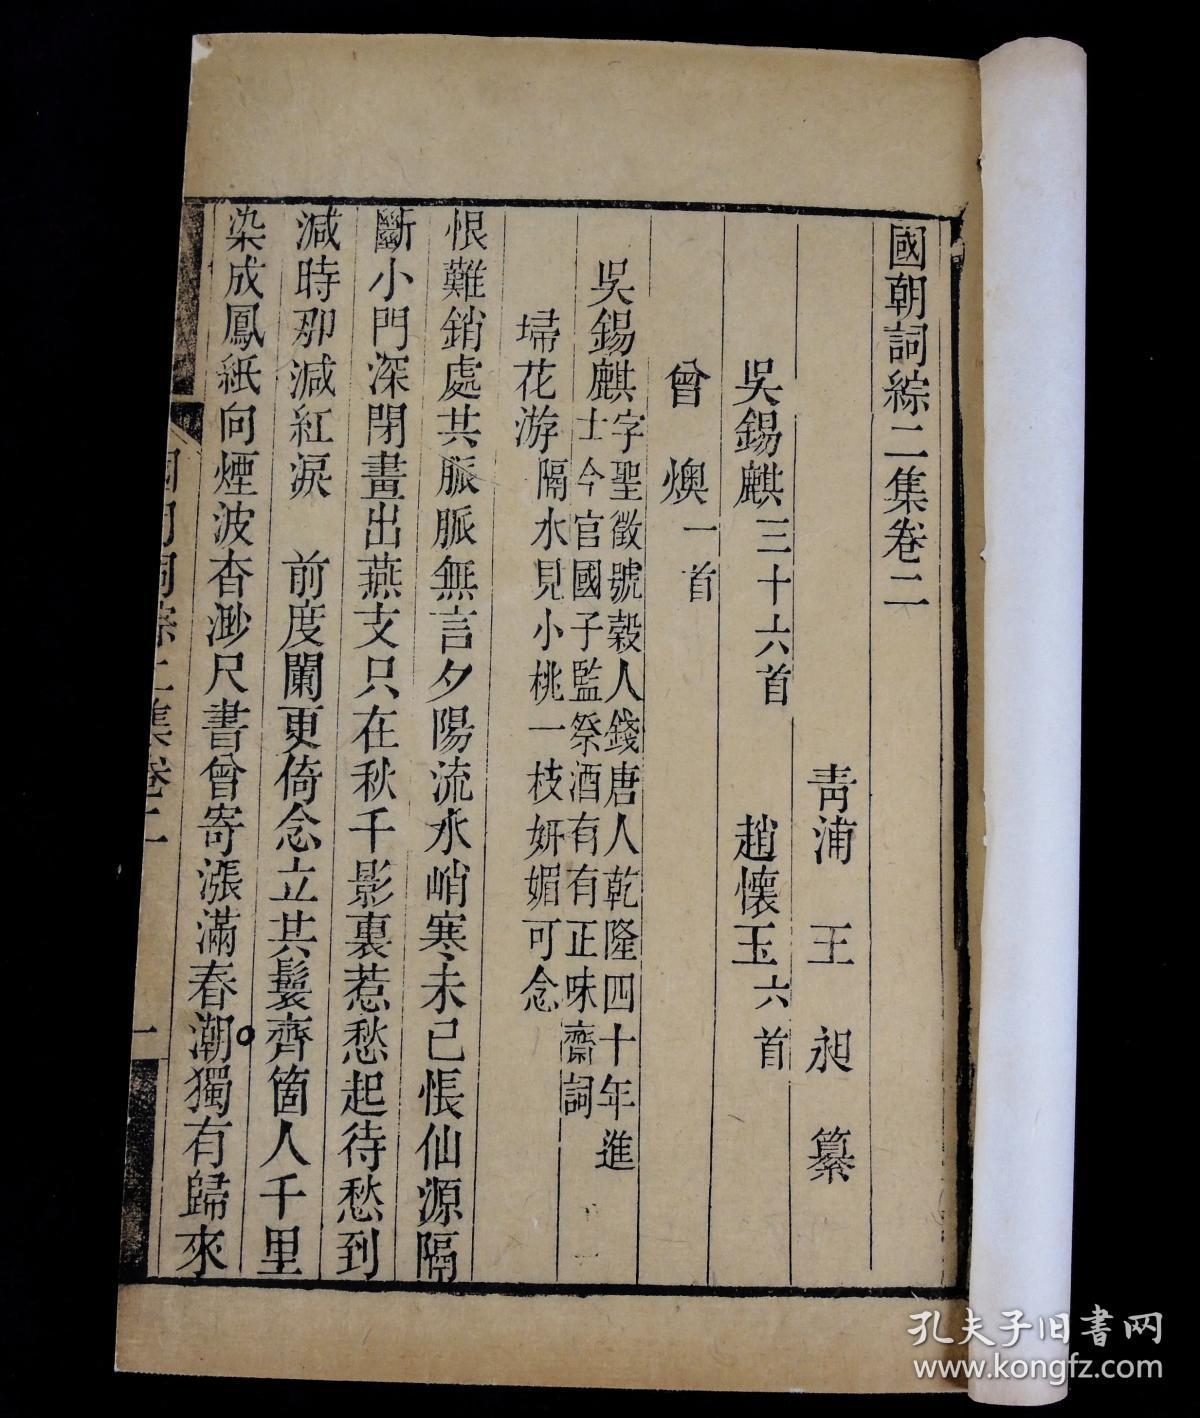 國朝詞綜二集卷二
青浦 王昶 纂
吳錫麒三十六首 趙懷玉六首
曾燠一首
吳錫麒字聖徵號穀人錢唐人乾隆四十年進
士今官國子監祭酒有有正味齋詞
埽花游隔水見小桃一枝妍媚可念
恨難銷處共脈脈無言夕陽流水峭寒未已悵仙源隔
斷小門深閉畫出燕支只在秋千影裏惹愁起待愁到
減時那減紅淚 前度闌更倚念立共鬟齊箇人千里
染成鳳紙向煙波杳渺尺書曾寄漲滿春潮獨有歸來
國朝詞綜二集卷二
一
孔夫子旧书网
www.kongfz.com